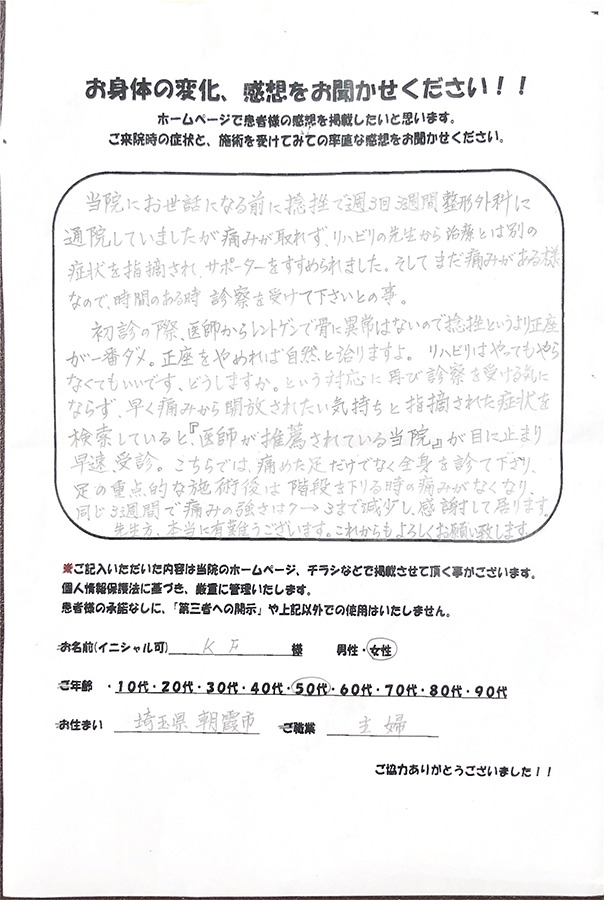 お身体の変化、感想をお聞かせください！！
ホームページで患者様の感想を掲載したいと思います。
ご来院時の症状と、施術を受けてみての率直な感想をお聞かせください。
当院にお世話になる前に捻挫で週3回3週間整形外科に
通院していましたが痛みが取れず、リハビリの先生から治療とは別の
症状を指摘され、サポーターをすすめられました。そしてまだ痛みがある様
なので、時間のある時 診察を受けて下さいとの事。
初診の際、医師からレントゲンで骨に異常はないので捻挫というより正座
が一番ダメ。正座をやめれば自然と治りますよ。 リハビリはやってもやら
なくてもいいです、どうしますか。という対応に再び診察を受ける気に
ならず、早く痛みから開放されたい気持ちと指摘された症状を
検索していると、『医師が推薦されている当院』が目に止まり
早速、受診。こちらでは、痛めた足だけでなく全身を診て下さり、
足の重点的な施術後は階段を下りる時の痛みがなくなり、
同じ3週間で痛みの強さは7→3まで減少し、感謝して居ります。
先生方、本当に有難うございます。これからもよろしくお願い致します
※ご記入いただいた内容は当院のホームページ、チラシなどで掲載させて頂く事がございます。
個人情報保護法に基づき、厳重に管理いたします。
患者様の承諾なしに、「第三者への開示」や上記以外での使用はいたしません。
お名前(イニシャル可) K F 様 男性・女性
ご年齢 ・10代・20代・30代・40代・50代・60代・70代・80代・90代
お住まい 埼玉県 朝霞市 ご職業 主婦
ご協力ありがとうございました！！